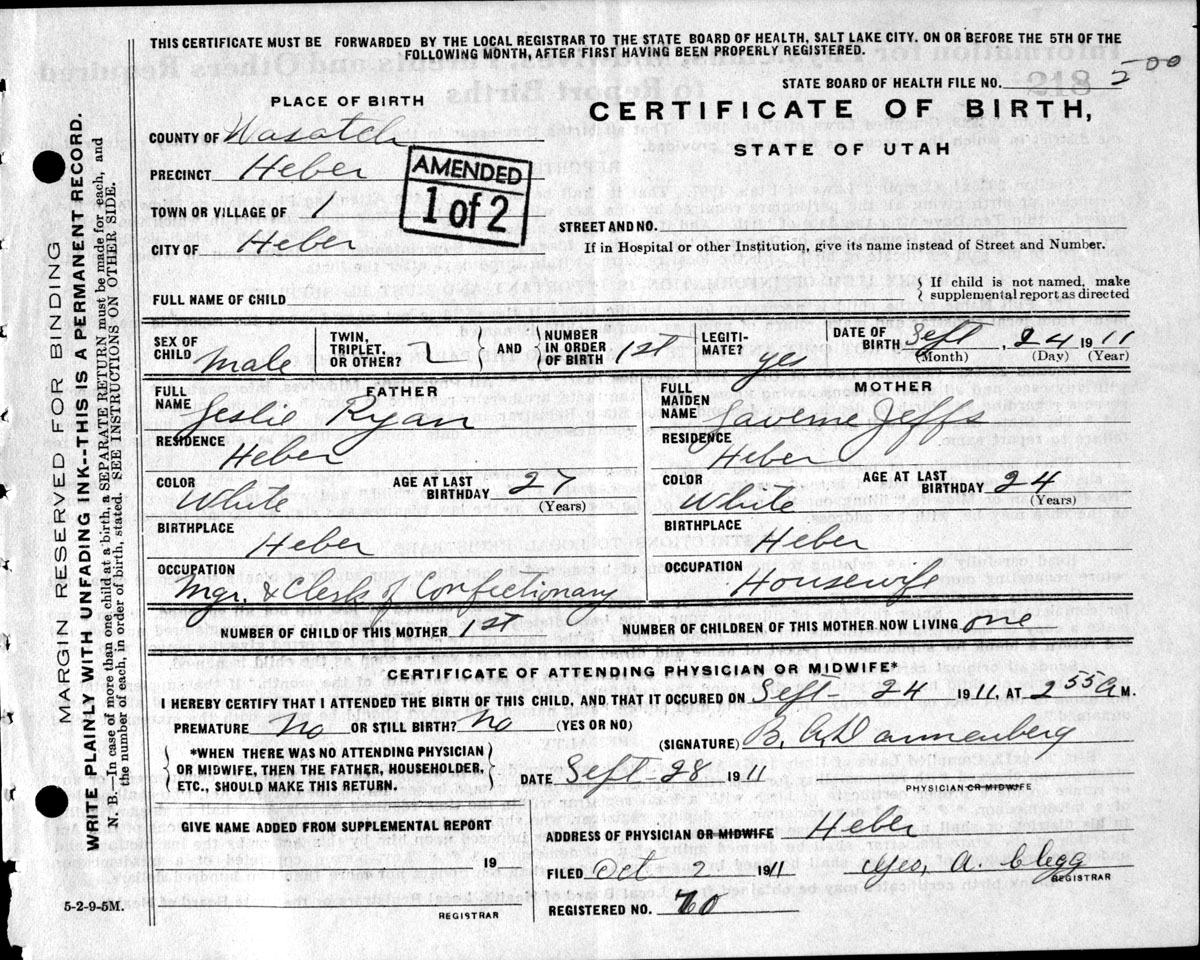 THIS CERTIFICATE MUST BE FORWARDED BY THE LOCAL REGISTRAR TO THE STATE BOARD OF HEALTH, SALT LAKE CITY, ON OR BEFORE THE 5TH OF THE
FOLLOWING MONTH, AFTER FIRST HAVING BEEN PROPERLY REGISTERED.
STATE BOARD OF HEALTH FILE NO.
218
PLACE OF BIRTH
CERTIFICATE OF BIRTH,
STATE OF UTAH
COUNTY OF Wasatch
PRECINCT Heber
TOWN OR VILLAGE OF
CITY OF Heber
AMENDED
1 of 2
STREET AND NO.
If in Hospital or other Institution, give its name instead of Street and Number.
FULL NAME OF CHILD
If child is not named, make
supplemental report as directed
SEX OF CHILD Male
TWIN, TRIPLET, OR OTHER?
AND
NUMBER IN ORDER OF BIRTH 1st
LEGITIMATE? yes
DATE OF BIRTH Sept, 24 1911
(Month) (Day) (Year)
FATHER
FULL NAME Leslie Ryan
RESIDENCE Heber
COLOR White
AGE AT LAST BIRTHDAY 27
(Years)
BIRTHPLACE Heber
OCCUPATION Mgr. & Clerk of Confectionary
MOTHER
FULL MAIDEN NAME Laverne Jeffs
RESIDENCE Heber
COLOR White
AGE AT LAST BIRTHDAY 24
(Years)
BIRTHPLACE Heber
OCCUPATION Housewife
NUMBER OF CHILD OF THIS MOTHER 1st
NUMBER OF CHILDREN OF THIS MOTHER NOW LIVING one
CERTIFICATE OF ATTENDING PHYSICIAN OR MIDWIFE*
I HEREBY CERTIFY THAT I ATTENDED THE BIRTH OF THIS CHILD, AND THAT IT OCCURED ON Sept- 24 1911, AT 2 55 A M.
PREMATURE No OR STILL BIRTH? No (YES OR NO)
*WHEN THERE WAS NO ATTENDING PHYSICIAN
OR MIDWIFE, THEN THE FATHER, HOUSEHOLDER,
ETC., SHOULD MAKE THIS RETURN.
(SIGNATURE) B. A. Dannenberg
DATE Sept-28 1911
PHYSICIAN OR MIDWIFE
GIVE NAME ADDED FROM SUPPLEMENTAL REPORT
19
REGISTRAR
5-2-9-5M.
ADDRESS OF PHYSICIAN OR MIDWIFE Heber
FILED Oct 2 1911
Geo, A. Clegg
REGISTRAR
REGISTERED NO. 70
MARGIN RESERVED FOR BINDING
WRITE PLAINLY WITH UNFADING INK--THIS IS A PERMANENT RECORD.
N. B.--In case of more than one child at a birth, a SEPARATE RETURN must be made for each, and
the number of each, in order of birth, stated. SEE INSTRUCTIONS ON OTHER SIDE.